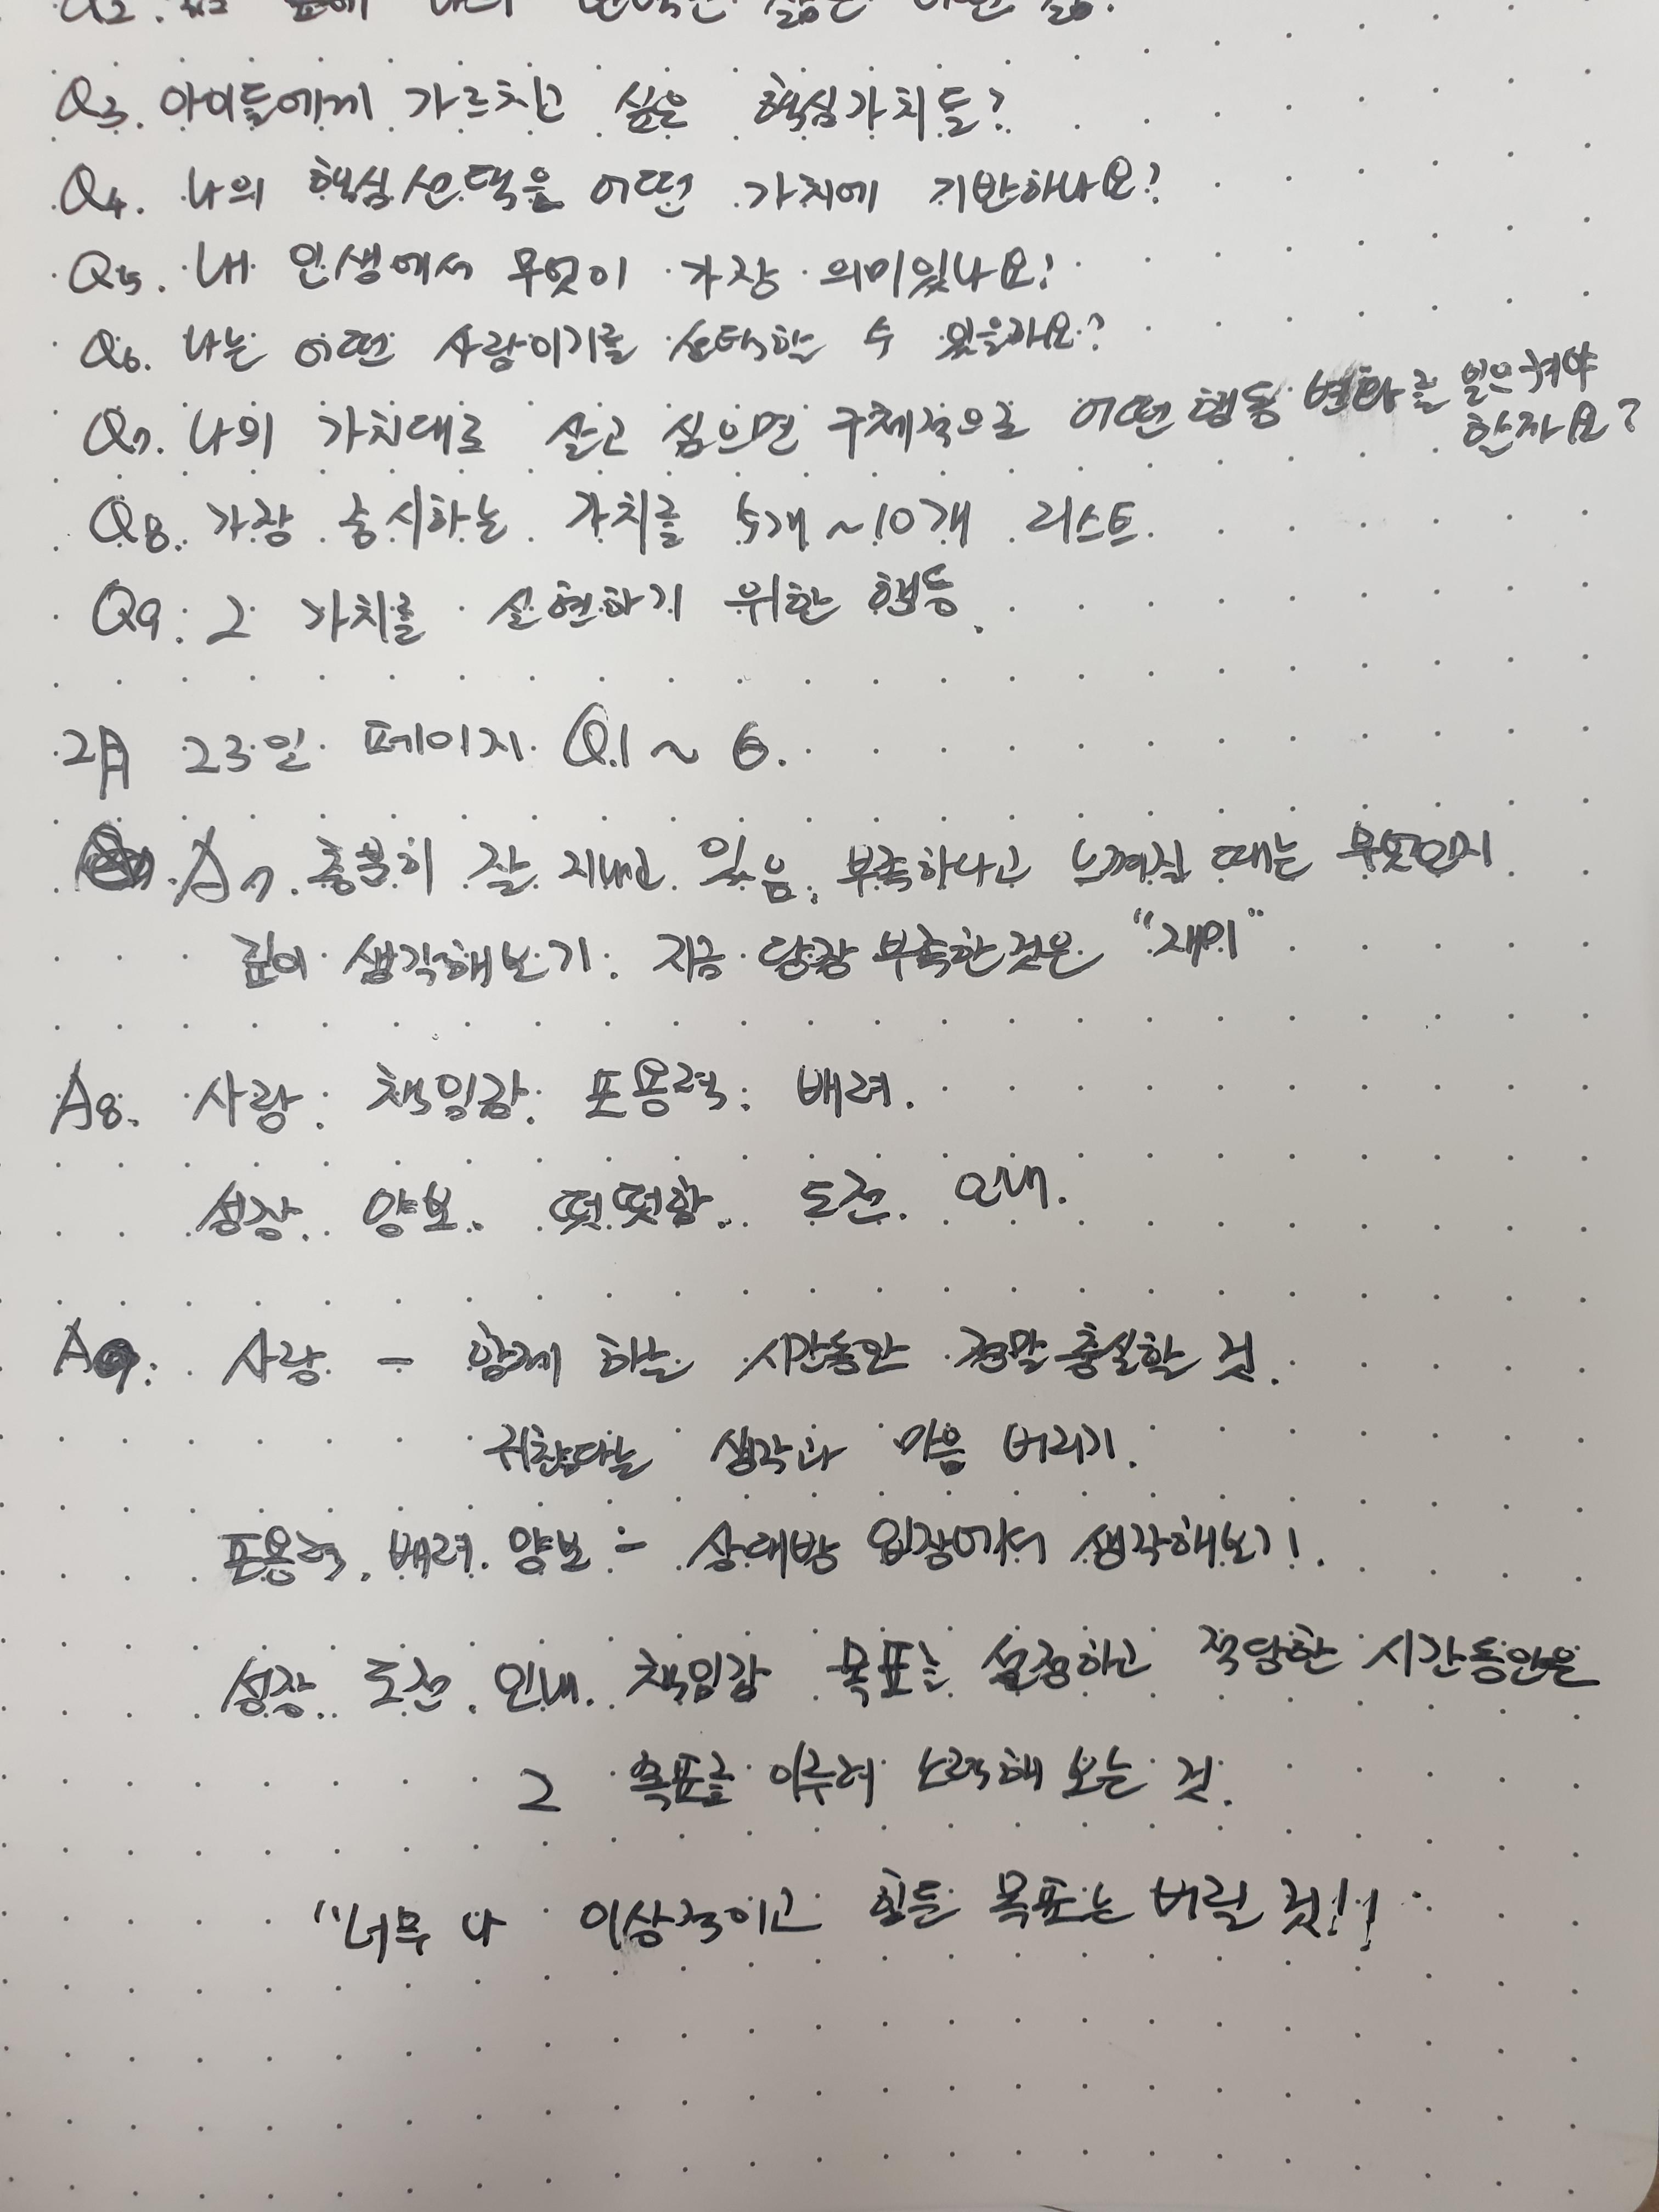 Q3. 아이들에게 가르치고 싶은 핵심가치들?
Q4. 나의 핵심선택은 어떤 가치에 기반하나요?
Q5. 내 인생에서 무엇이 가장 의미있나요?
Q6. 나는 어떤 사람이기를 선택할 수 있을까요?
Q7. 나의 가치대로 살고 싶으면 구체적으로 어떤 행동 변화를 일으켜야
할까요?
Q8. 가장 중시하는 가치를 5개~10개 리스트.
Q9. 그 가치를 실현하기 위한 행동.
2月 23일 페이지 Q1 ~ 6.
A7. 충분히 잘 지내고 있음. 부족하다고 느껴질 때는 무엇인지
깊이 생각해보기. 지금 당장 부족한 것은 "재미"
A8. 사랑. 책임감. 포용력. 배려.
성장. 양보. 떳떳함. 도전. 인내.
A9. 사랑 - 함께 하는 시간동안 정말 충실할 것.
귀찮다는 생각과 마음 버리기.
포용력. 배려. 양보 - 상대방 입장에서 생각해보기!.
성장. 도전. 인내. 책임감 목표를 설정하고 적당한 시간동안은
그 목표를 이루려 노력해 보는 것.
"너무 나 이상적이고 힘든 목표는 버릴 것!!